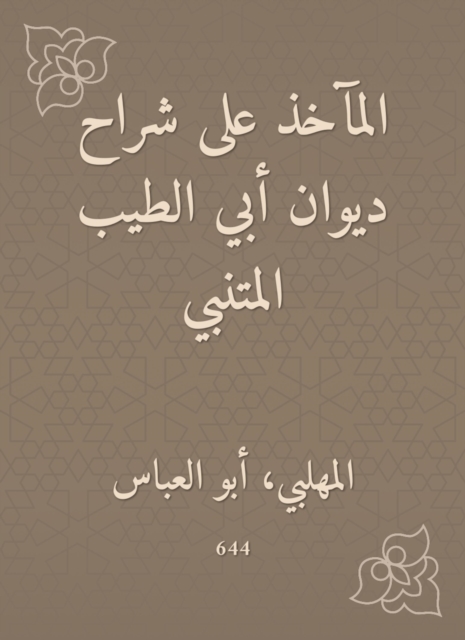 المآخذ على شراح
ديوان أبي الطيب
المتنبي
المهلبي، أبو العباس
644